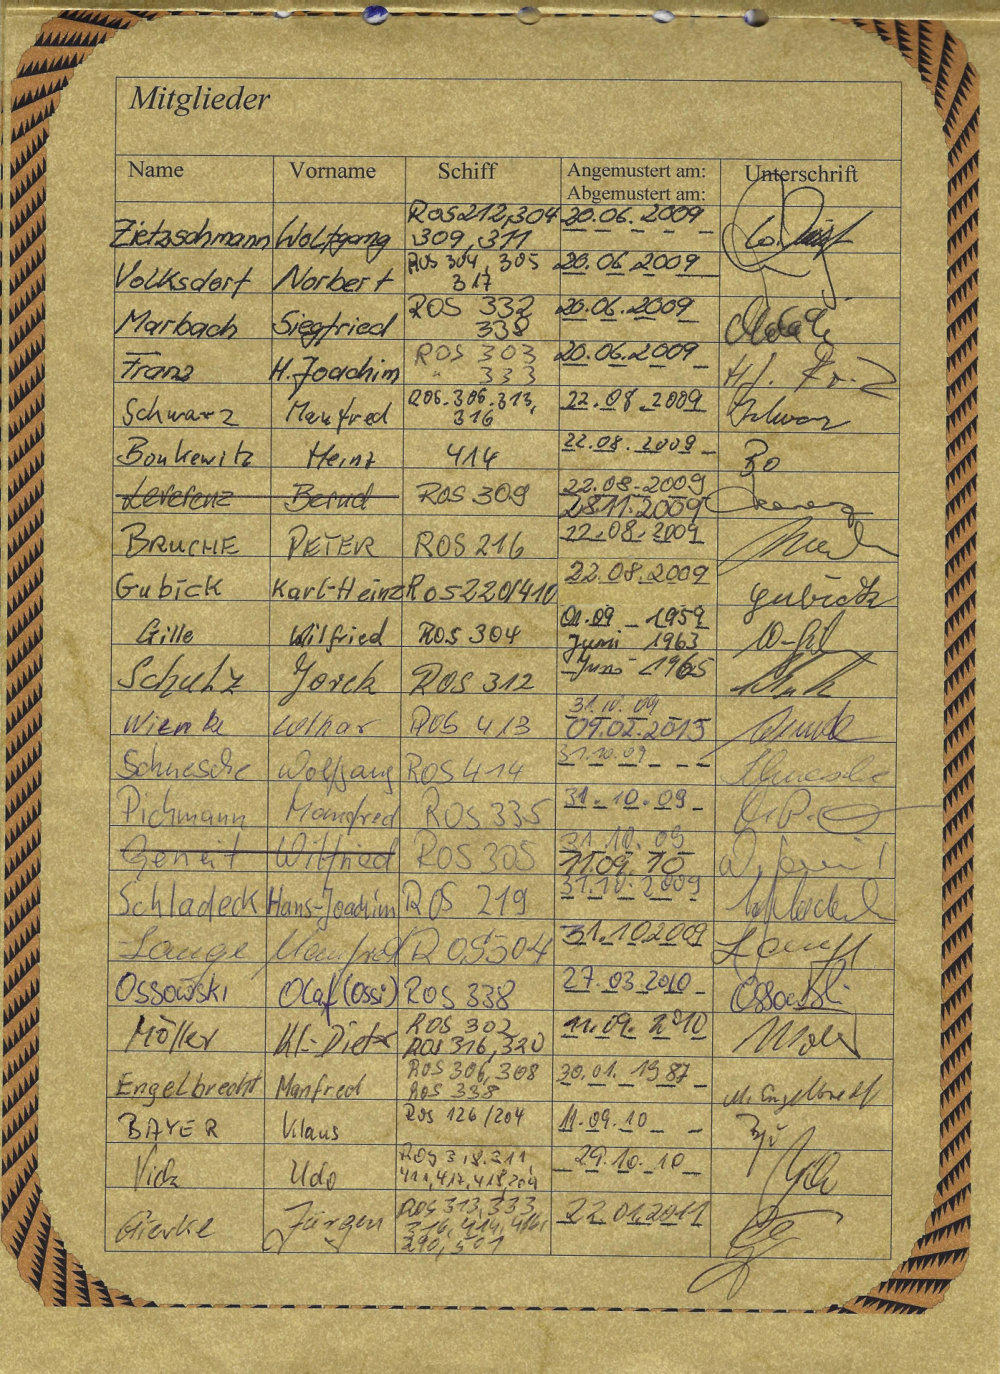 Mitglieder
Name Vorname Schiff Angemustert am: Unterschrift
Abgemustert am:
Zietzschmann Wolfgang ROS 212, 304 20.06.2009
309, 311
Volksdorf Norbert ROS 304, 305 20.06.2009
317
Marbach Siegfried ROS 332 20.06.2009
338
Franz H. Joachim ROS 303 20.06.2009
" 333
Schwarz Manfred ROS. 306. 313, 22.08.2009 Schwarz
316
Bonkewitz Heinz 414 22.08.2009 Bo
Leverenz Bernd ROS 309 22.08.2009
28.11.2009
BRUCHE PETER ROS 216 22.08.2009
Gubick Karl-Heinz Ros 220/410 22.08.2009 Gubick
Gille Wilfried ROS 304 01.09 1959
Juni 1963
Schulz Jorck ROS 312 Juni 1965
Wiemke Lothar ROS 413 31.10.09
09.02.2015
Schnesche Wolfgang ROS 414 31.10.09 Schnesche
Pichmann Manfred ROS 335 31.10.09
Geneit Wilfried ROS 305 31.10.09
11.09.10
Schladeck Hans-Joachim ROS 219 31.10.2009
Lange Manfred ROS 304 31.10.2009
Ossowski Olaf (Ossi) ROS 338 27.03.2010 Ossowski
Möller Kl.-Dieter ROS 302 11.09.2010 Möller
ROS 316, 320
Engelbrecht Manfred ROS 306, 308 30.01.1987 M. Engelbrecht
ROS 338
BAYER Klaus ROS 126/204 11.09.10
Vick Udo ROS 318. 311, 29.10.10
411, 417, 418, 204
Gierke Jürgen ROS 313, 333, 22.01.2011
316, 414, 416,
290, 501